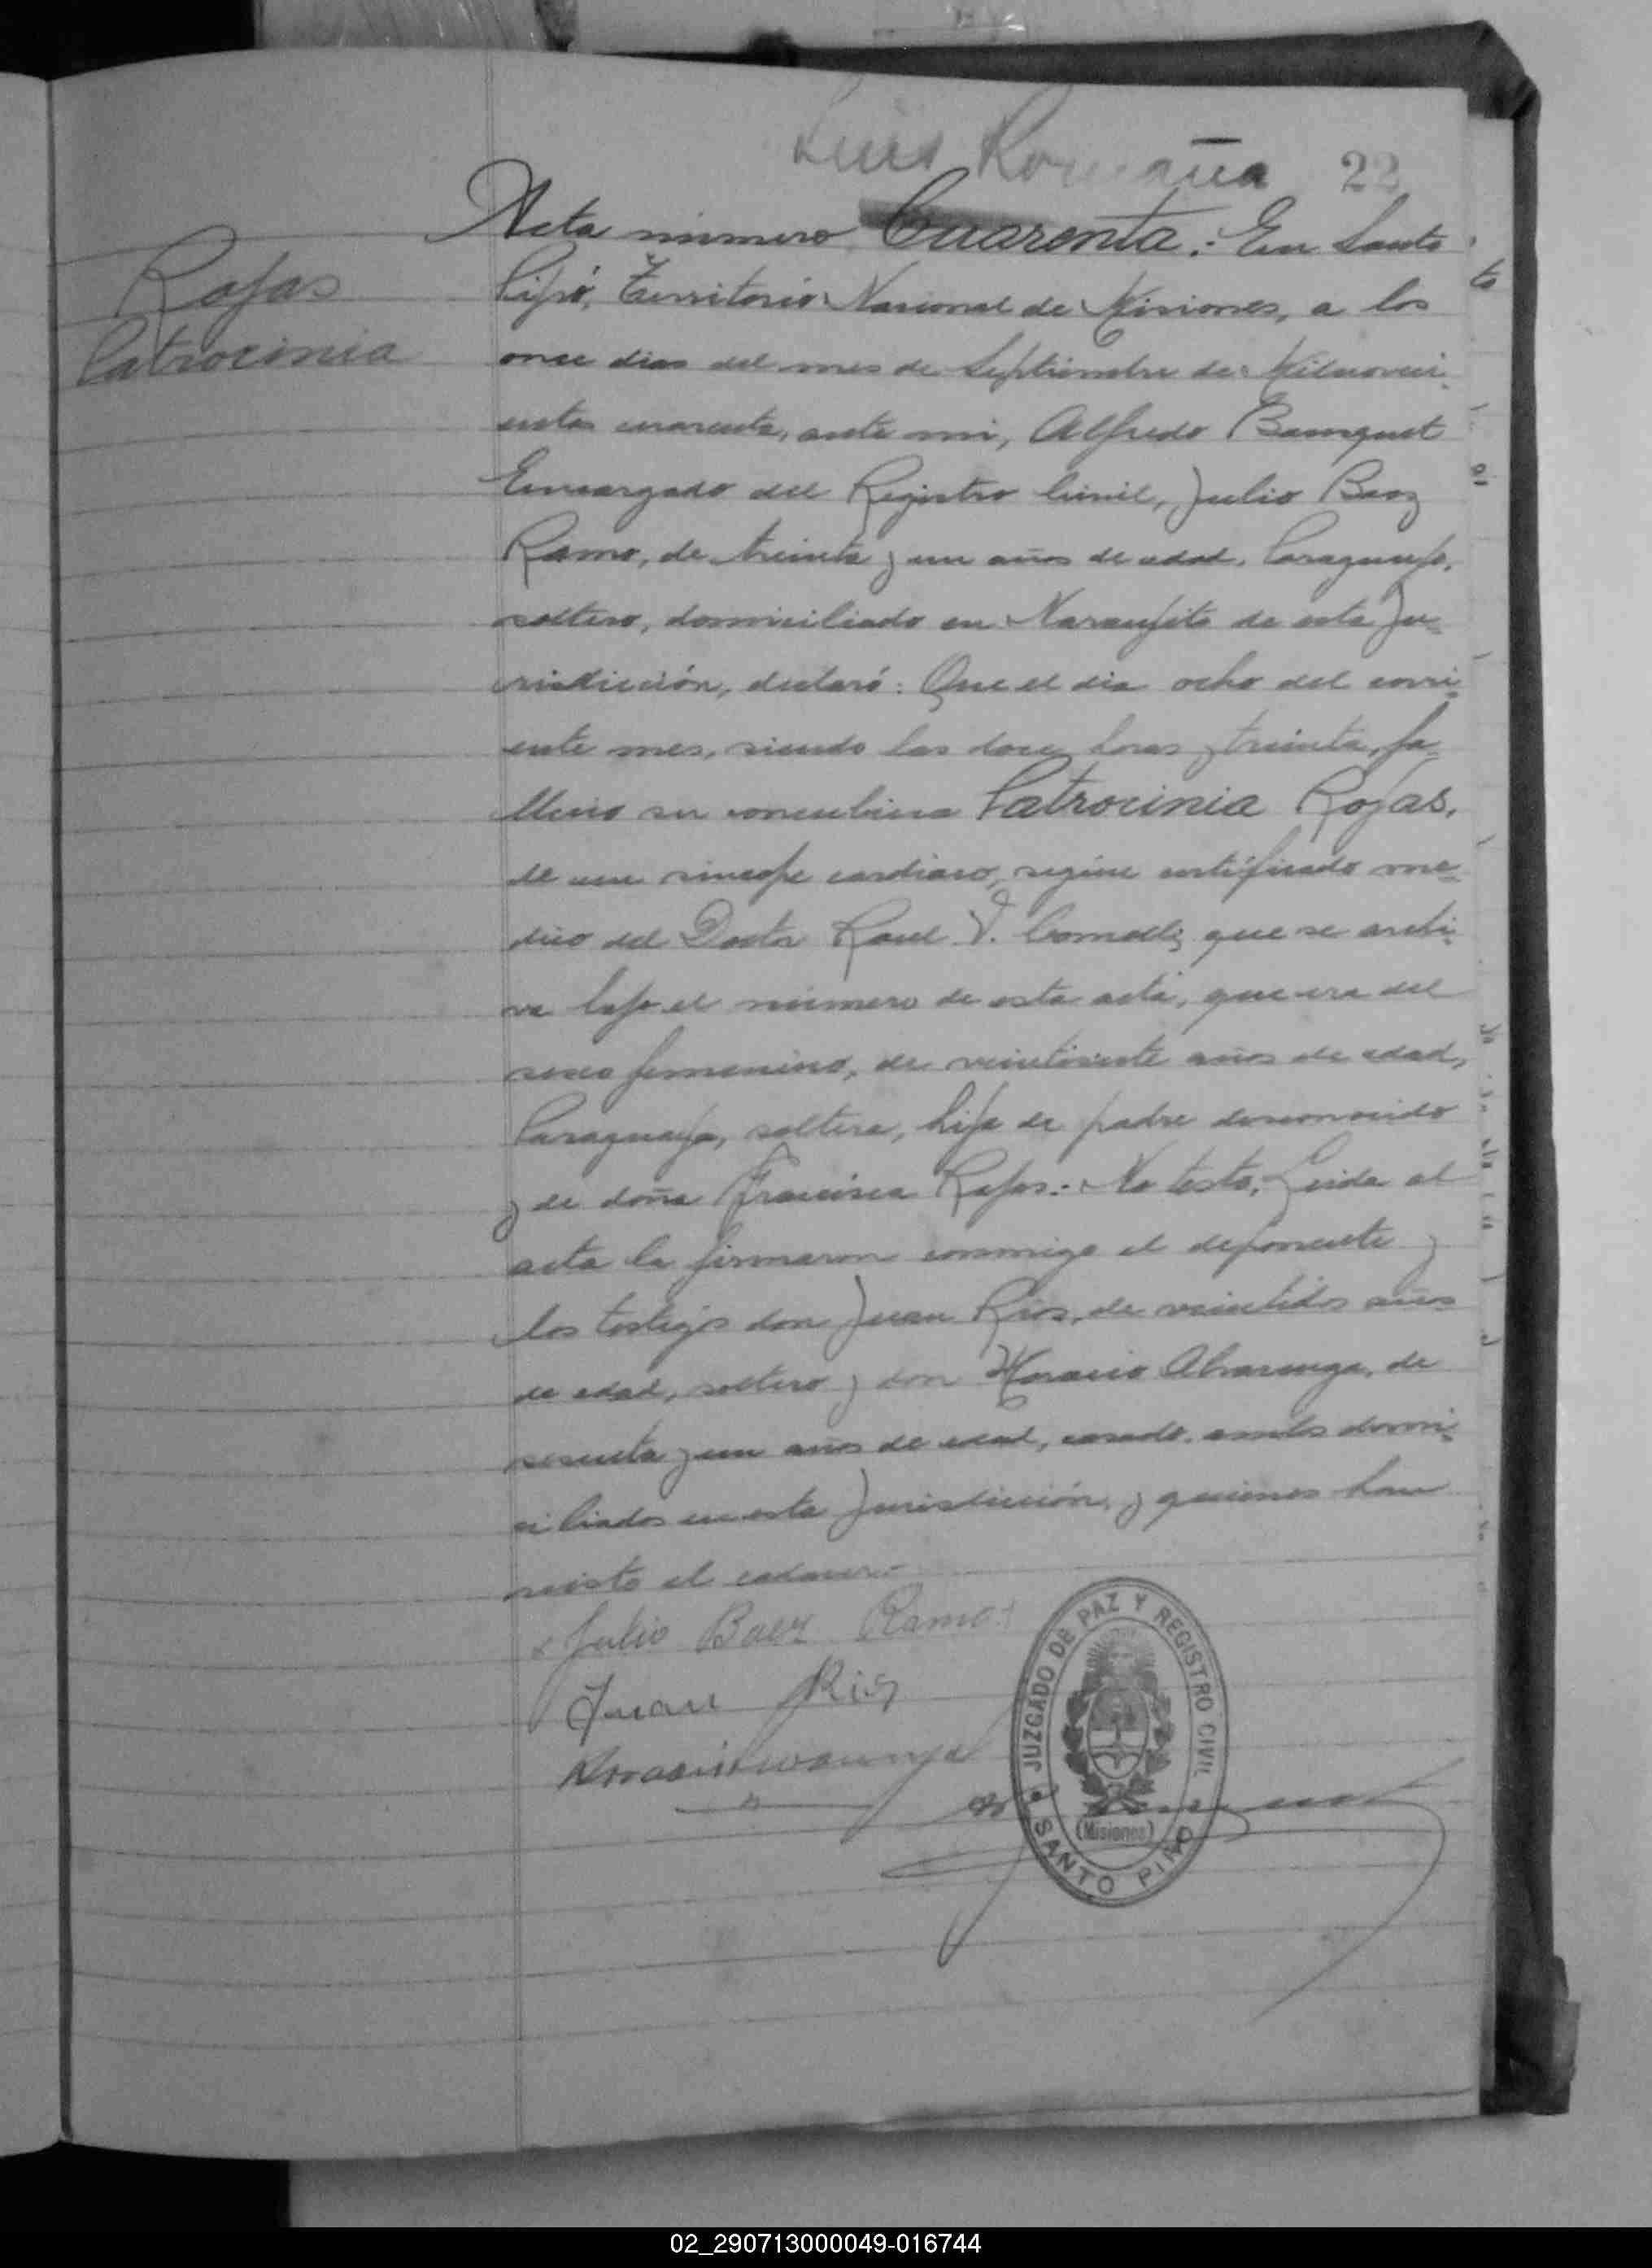 Luis Romaña 22
Acta número Cuarenta: En Santo
Pipó, Territorio Nacional de Misiones, a los
once dias del mes de Septiembre de Milnoveci-
entos cuarenta, ante mi, Alfredo
Encargado del Registro Civil, Julio Baez
Ramo, de treinta y un años de edad, Paraguayo,
soltero, domiciliado en Naranjito de esta Ju-
risdicción, declaró: Que el dia ocho del corri-
ente mes, siendo las doce horas y treinta, fa-
llecio su concubina Patrocinia Rojas,
de un sincope cardiaco, según certificado me-
dico del Doctor Raul V. que se archi-
va bajo el número de esta acta, que era del
sexo femenino, de veintisiete años de edad,
Paraguaya, soltera, hija de padre desconocido
y de doña Francisca Rojas.- No testo.- Leida el
acta la firmaron conmigo el deponente y
los testigos don Juan Rios, de veintidos años
de edad, soltero y don Horacio Alvarenga, de
sesenta y un años de edad, casado, ambos domi-
ciliados en esta Jurisdicción, y quienes han
visto el cadaver.-
Rojas
Patrocinia
Julio Baez Ramo
Juan Rios
JUZGADO DE PAZ Y REGISTRO CIVIL
(Misiones)
SANTO PIPÓ
02_290713000049-016744